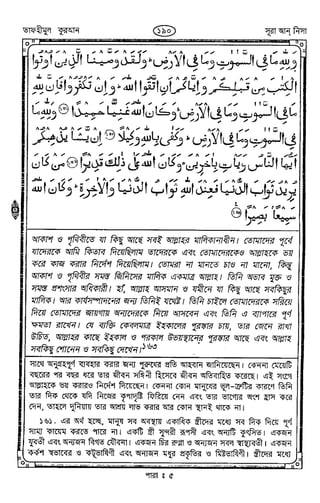 তাফহীমুল কুরআন
১৯০
সূরা আন্ নিসা
وَلِلّٰهِ مَا فِي السَّمٰوٰتِ وَمَا فِي الْاَرْضِ ۗ وَلَقَدْ وَصَّيْنَا الَّذِيْنَ اُوْتُوا
الْكِتٰبَ مِنْ قَبْلِكُمْ وَاِيَّاكُمْ اَنِ اتَّقُوا اللّٰهَ ۗ وَاِنْ تَكْفُرُوْا فَاِنَّ لِلّٰهِ
مَا فِي السَّمٰوٰتِ وَمَا فِي الْاَرْضِ ۗ وَكَانَ اللّٰهُ غَنِيًّا حَمِيْدًا ۝ وَلِلّٰهِ مَا
فِي السَّمٰوٰتِ وَمَا فِي الْاَرْضِ ۗ وَكَفٰى بِاللّٰهِ وَكِيْلًا ۝ اِنْ يَّشَاْ يُذْهِبْكُمْ
اَيُّهَا النَّاسُ وَيَاْتِ بِاٰخَرِيْنَ ۗ وَكَانَ اللّٰهُ عَلٰى ذٰلِكَ قَدِيْرًا ۝ مَنْ كَانَ
يُرِيْدُ ثَوَابَ الدُّنْيَا فَعِنْدَ اللّٰهِ ثَوَابُ الدُّنْيَا وَالْاٰخِرَةِ ۗ وَكَانَ اللّٰهُ
سَمِيْعًا بَصِيْرًا ۝
আকাশ ও পৃথিবীতে যা কিছু আছে সবই আল্লাহর মালিকানাধীন। তোমাদের পূর্বে
যাদেরকে আমি কিতাব দিয়েছিলাম তাদেরকে এবং তোমাদেরকেও আল্লাহকে ভয়
করে কাজ করার নির্দেশ দিয়েছিলাম। তোমরা না মানতে চাও না মানো, কিন্তু
আকাশ ও পৃথিবীর সমস্ত জিনিসের মালিক একমাত্র আল্লাহ। তিনি অভাব মুক্ত ও
সমস্ত প্রশংসার অধিকারী। হাঁ, আল্লাহ আসমান ও যমীনে যা কিছু আছে সবকিছুর
মালিক। আর কার্যসম্পাদনের জন্য তিনিই যথেষ্ট। তিনি চাইলে তোমাদেরকে সরিয়ে
দিয়ে তোমাদের জায়গায় অন্যদেরকে নিয়ে আসবেন এবং তিনি এ ব্যাপারে পূর্ণ
ক্ষমতা রাখেন। যে ব্যক্তি কেবলমাত্র ইহকালের পুরস্কার চায়, তার জেনে রাখা
উচিত, আল্লাহর কাছে ইহকাল ও পরকাল উভয়স্থানের পুরস্কার আছে এবং আল্লাহ
সবকিছু শোনেন ও সবকিছু দেখেন।১৬৩
সাথে অনুগ্রহপূর্ণ ব্যবহার করার জন্য পুরুষের প্রতি আহবান জানিয়েছেন। কেননা মেয়েটি
বছরের পর বছর ধরে তার জীবন সঙ্গিনী হিসেবে জীবন অতিবাহিত করেছে। এই সংগে
আল্লাহকে ভয় করারও নির্দেশ দিয়েছেন। কেননা কোন মানুষের ভুল-ত্রুটির কারণে তিনি
তার দিক থেকে যদি নিজের কৃপাদৃষ্টি ফিরিয়ে নেন এবং তার ভাগ্যের অংশ হ্রাস করে
দেন, তাহলে দুনিয়ায় তার আশ্রয় লাভ করার আর কোন স্থানই থাকে না।
১৬১. এর অর্থ হচ্ছে, মানুষ সব অবস্থায় একাধিক স্ত্রীদের মধ্যে সব দিক দিয়ে পূর্ণ
সাম্য কায়েম করতে পারে না। একটি স্ত্রী সুন্দরী রূপসী এবং অন্যটি কুৎসিত। একজন
যুবতী এবং অন্যজন বিগত যৌবনা। একজন চির রুগ্না ও অন্যজন সবল স্বাস্থ্যবতী। একজন
কর্কশ স্বভাবের ও কটুভাষিনী এবং অন্যজন মধুর প্রকৃতির ও মিষ্টভাষিনী। স্ত্রীদের মধ্যে
পারা ঃ ৫